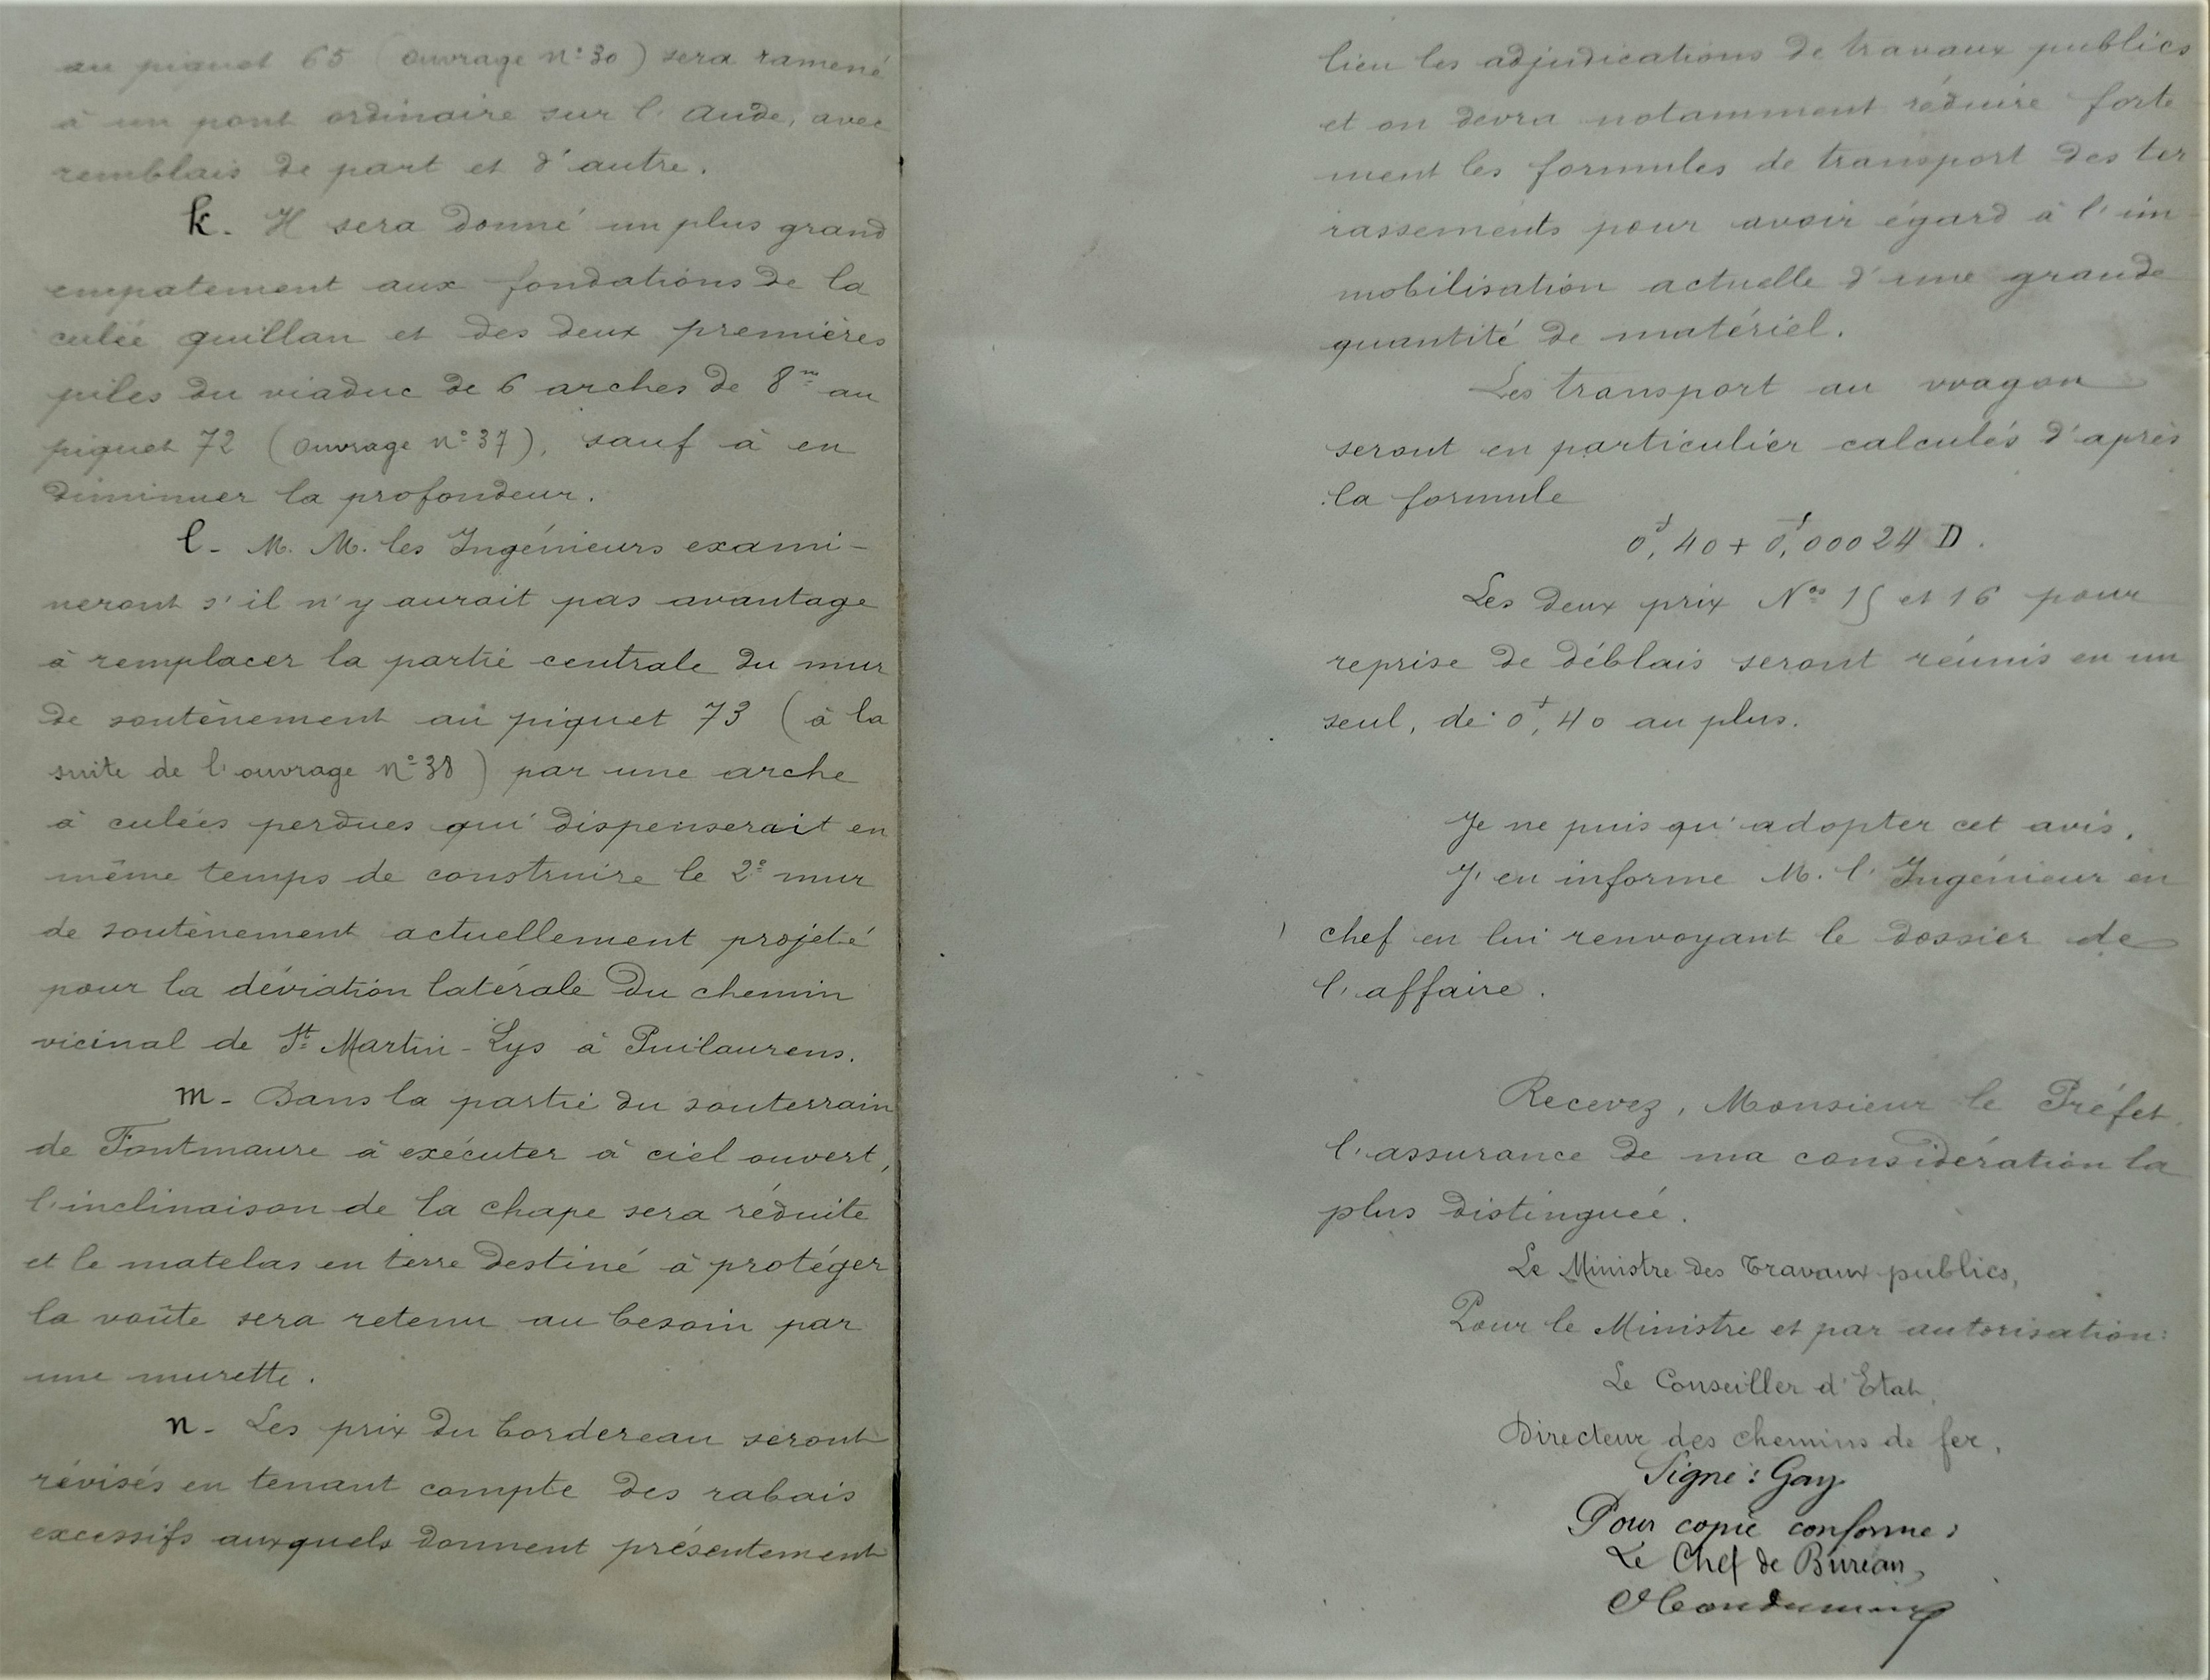 au piquet 65 (ouvrage n° 30) sera ramené
à un pont ordinaire sur l'Aude, avec
remblais de part et d'autre.
k. Il sera donné un plus grand
empatement aux fondations de la
culée Quillan et des deux premières
piles du viaduc de 6 arches de 8m au
piquet 72 (ouvrage n° 37), sauf à en
diminuer la profondeur.
l. M. M. les Ingénieurs exami-
neront s'il n'y aurait pas avantage
à remplacer la partie centrale du mur
de soutènement au piquet 73 (à la
suite de l'ouvrage n° 38) par une arche
à culées perdues qui dispenserait en
même temps de construire le 2e mur
de soutènement actuellement projeté
pour la déviation latérale du chemin
vicinal de St Martin-Lys à Puilaurens.
m. Dans la partie du souterrain
de Fontmaure à exécuter à ciel ouvert,
l'inclinaison de la chape sera réduite
et le matelas en terre destiné à protéger
la voûte sera retenu au besoin par
une murette.
n. Les prix du bordereau seront
révisés en tenant compte des rabais
excessifs auxquels donnent présentement
lieu les adjudications de travaux publics
et on devra notamment réduire forte
ment les formules de transport des ter
rassements pour avoir égard à l'im-
mobilisation actuelle d'une grande
quantité de matériel.
Les transport au wagon
seront en particulier calculés d'après
la formule
0f,40 + 0f,00024 D.
Les deux prix Nos 15 et 16 pour
reprise de déblais seront réunis en un
seul, de 0f,40 au plus.
Je ne puis qu'adopter cet avis.
J'en informe M. l'Ingénieur en
chef en lui renvoyant le dossier de
l'affaire.
Recevez, Monsieur le Préfet,
l'assurance de ma considération la
plus distinguée.
Le Ministre des Travaux publics,
Pour le Ministre et par autorisation:
Le Conseiller d'Etat,
Directeur des chemins de fer,
Signé: Gay
Pour copie conforme:
Le Chef de Bureau,